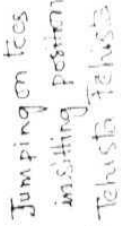 Jumping on toes
in sitting position
Tehista Tehista